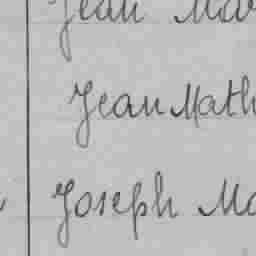 Jean Mar
Jean Math
Joseph Ma